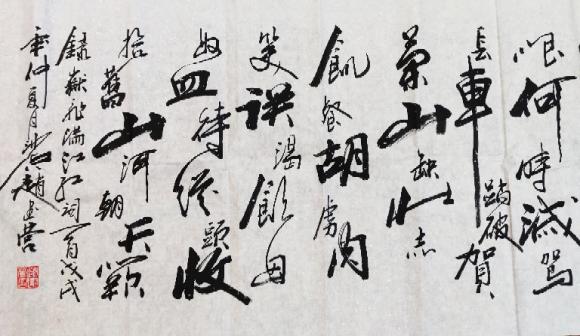 恨何時滅駕
長車踏破賀
蘭山缺壯志
飢餐胡虜肉
笑談渴飲匈
奴血待從頭收
拾舊山河朝天闕
錄嶽飛滿江紅詞一首戊戌
年仲夏日趙